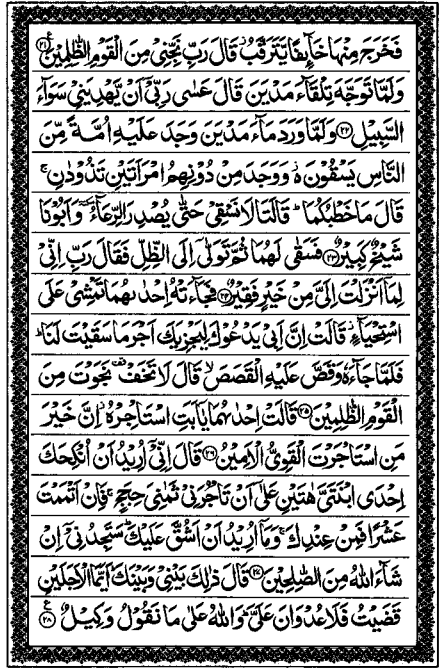 فَخَرَجَ مِنْهَا خَآئِفًا يَّتَرَقَّبُ قَالَ رَبِّ نَجِّنِيْ مِنَ الْقَوْمِ الظّٰلِمِيْنَ ﴿۲۱﴾
وَلَمَّا تَوَجَّهَ تِلْقَآءَ مَدْيَنَ قَالَ عَسٰى رَبِّيْٓ اَنْ يَّهْدِيَنِيْ سَوَآءَ
السَّبِيْلِ ﴿۲۲﴾ وَلَمَّا وَرَدَ مَآءَ مَدْيَنَ وَجَدَ عَلَيْهِ اُمَّةً مِّنَ
النَّاسِ يَسْقُوْنَ ە۬ وَوَجَدَ مِنْ دُوْنِهِمُ امْرَاَتَيْنِ تَذُوْدٰنِ ۚ
قَالَ مَا خَطْبُكُمَا ؕ قَالَتَا لَا نَسْقِيْ حَتّٰى يُصْدِرَ الرِّعَآءُ ٚ وَاَبُوْنَا
شَيْخٌ كَبِيْرٌ ﴿۲۳﴾ فَسَقٰى لَهُمَا ثُمَّ تَوَلّٰٓى اِلَى الظِّلِّ فَقَالَ رَبِّ اِنِّيْ
لِمَآ اَنْزَلْتَ اِلَيَّ مِنْ خَيْرٍ فَقِيْرٌ ﴿۲۴﴾ فَجَآءَتْهُ اِحْدٰىهُمَا تَمْشِيْ عَلَى
اسْتِحْيَآءٍ ۫ قَالَتْ اِنَّ اَبِيْ يَدْعُوْكَ لِيَجْزِيَكَ اَجْرَ مَا سَقَيْتَ لَنَا ؕ
فَلَمَّا جَآءَهٗ وَقَصَّ عَلَيْهِ الْقَصَصَ ۙ قَالَ لَا تَخَفْ ۫ نَجَوْتَ مِنَ
الْقَوْمِ الظّٰلِمِيْنَ ﴿۲۵﴾ قَالَتْ اِحْدٰىهُمَا يٰٓاَبَتِ اسْتَاْجِرْهُ ۫ اِنَّ خَيْرَ
مَنِ اسْتَاْجَرْتَ الْقَوِيُّ الْاَمِيْنُ ﴿۲۶﴾ قَالَ اِنِّيْٓ اُرِيْدُ اَنْ اُنْكِحَكَ
اِحْدَى ابْنَتَيَّ هٰتَيْنِ عَلٰٓى اَنْ تَاْجُرَنِيْ ثَمٰنِيَ حِجَجٍ ۚ فَاِنْ اَتْمَمْتَ
عَشْرًا فَمِنْ عِنْدِكَ ۚ وَمَآ اُرِيْدُ اَنْ اَشُقَّ عَلَيْكَ ؕ سَتَجِدُنِيْٓ اِنْ
شَآءَ اللّٰهُ مِنَ الصّٰلِحِيْنَ ﴿۲۷﴾ قَالَ ذٰلِكَ بَيْنِيْ وَبَيْنَكَ ؕ اَيَّمَا الْاَجَلَيْنِ
قَضَيْتُ فَلَا عُدْوَانَ عَلَيَّ ؕ وَاللّٰهُ عَلٰى مَا نَقُوْلُ وَكِيْلٌ ﴿۲۸﴾ ع